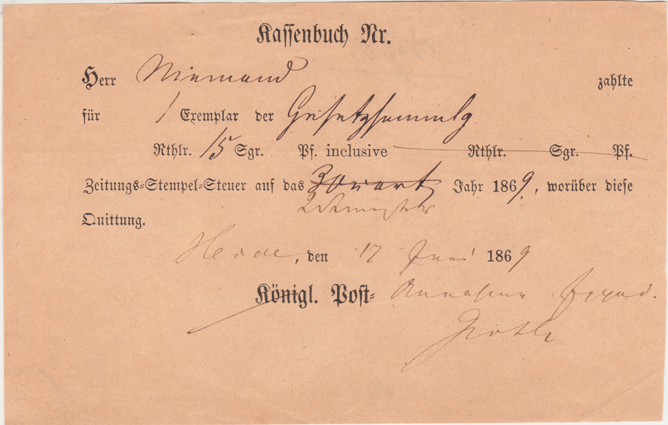 Kassenbuch Nr.
Herr Niemand zahlte
für 1 Exemplar der Gesetzsammlg
Rthlr. 15 Sgr. Pf. inclusive Rthlr. Sgr. Pf.
Zeitungs-Stempel-Steuer auf das Jahr 1869, worüber diese
Quittung.
Heide, den 17 Juni 1869
Königl. Post-